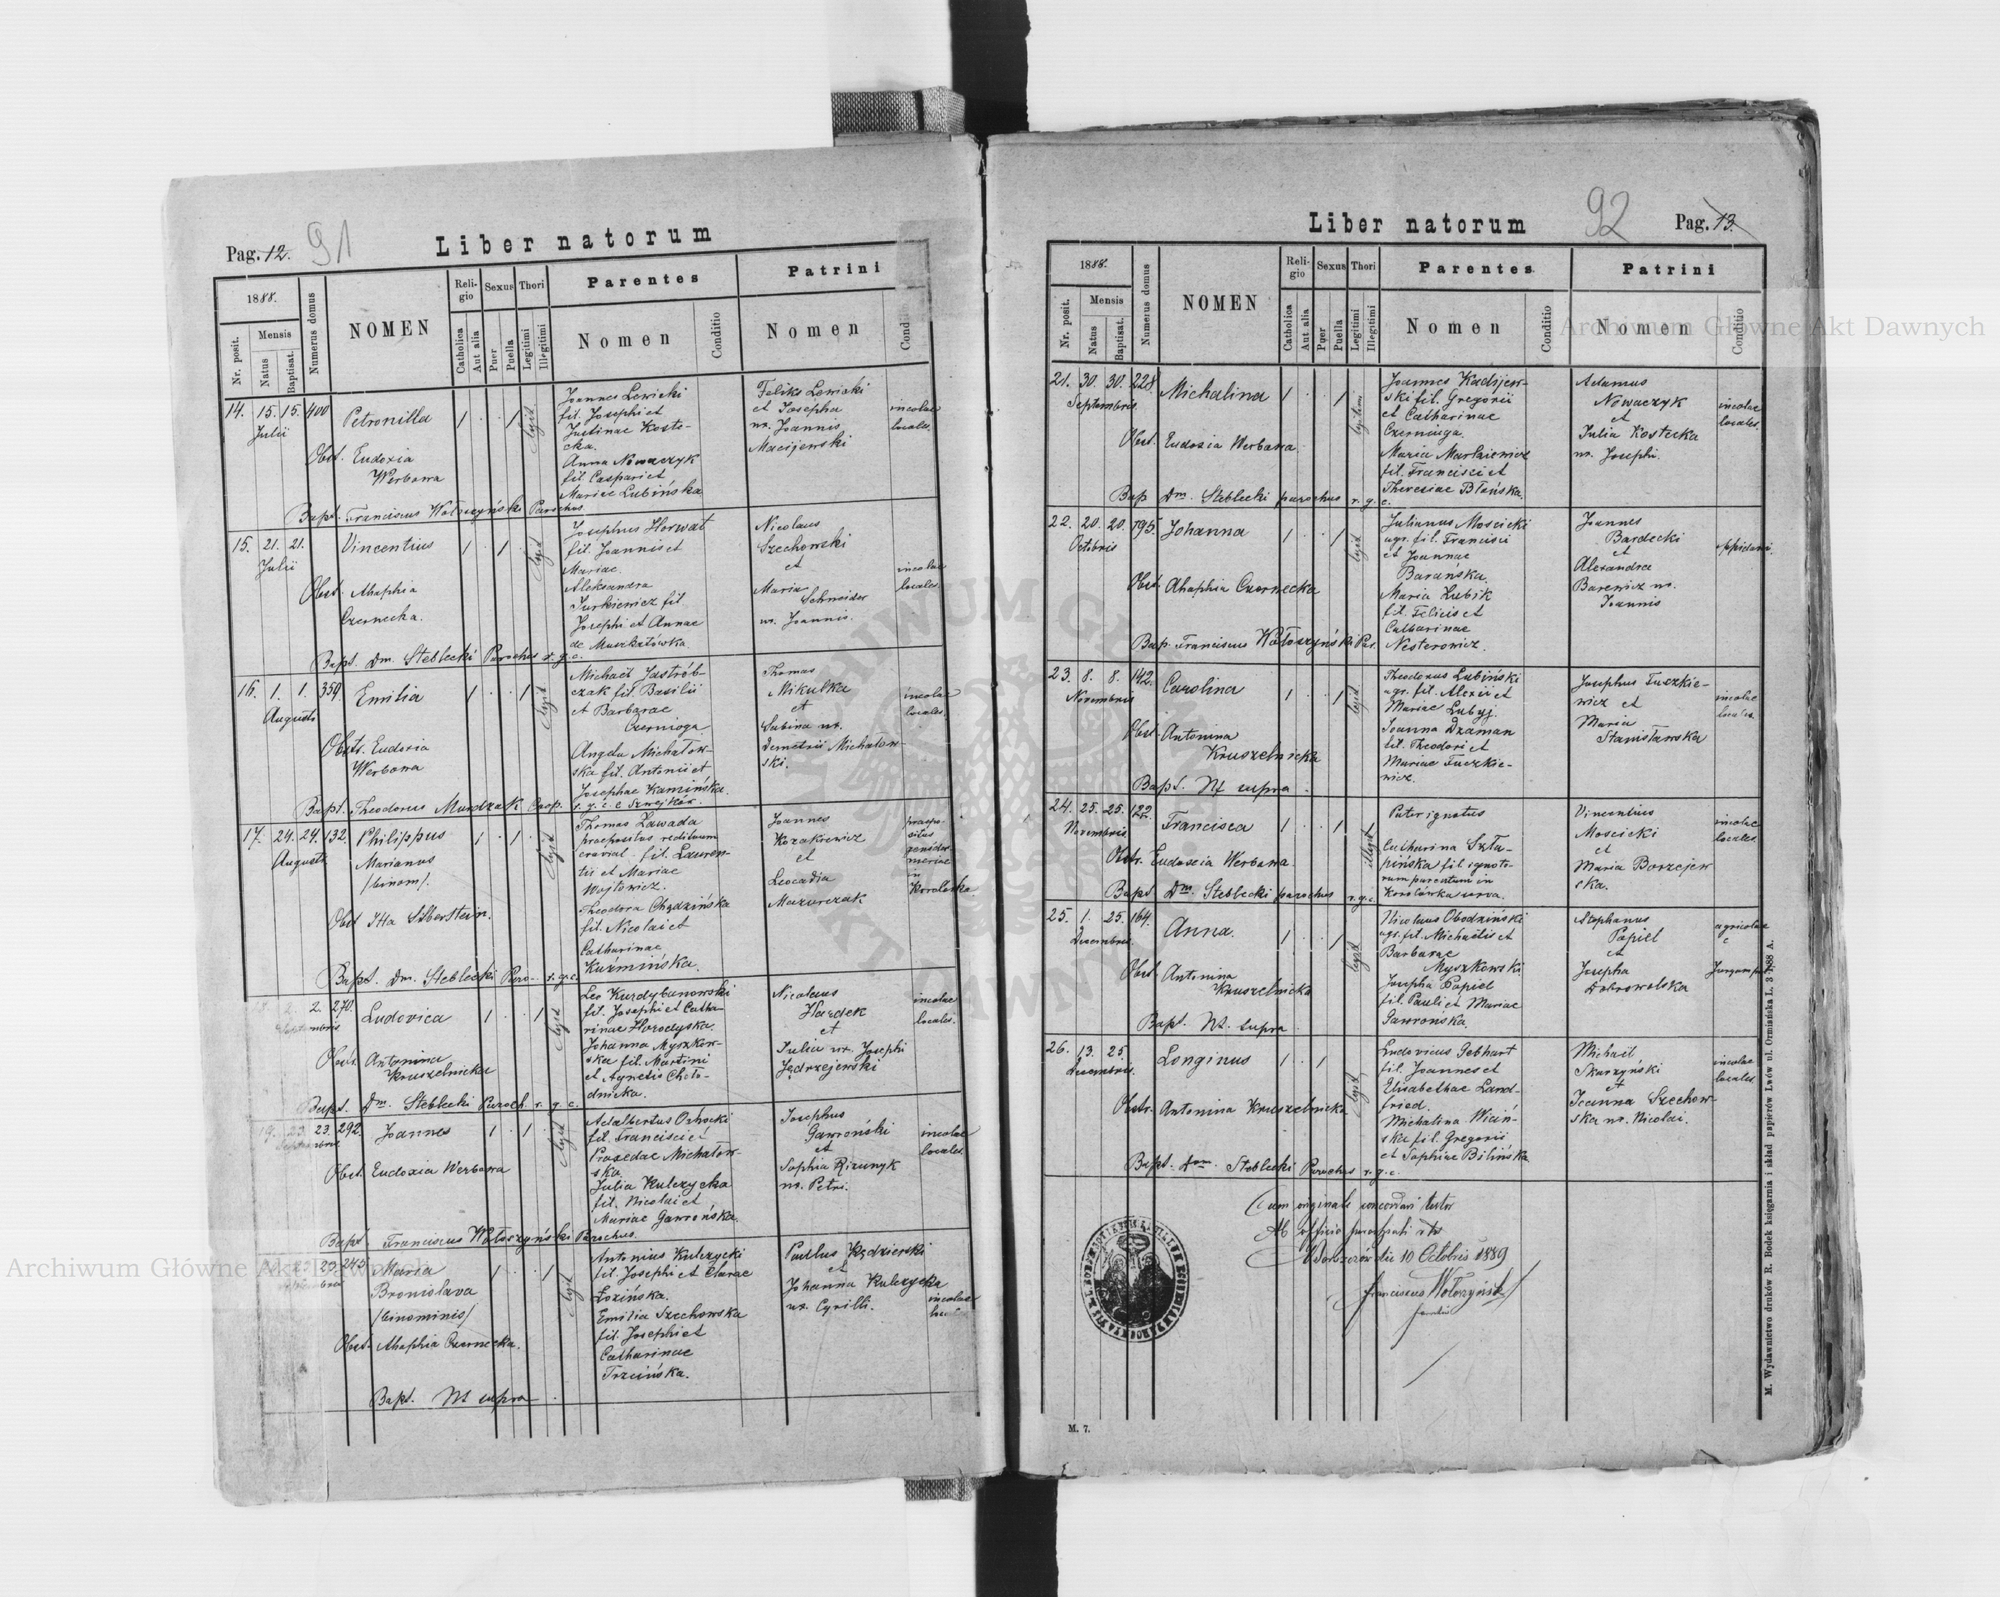 Pag. 12. 91
Liber natorum
1888.
Nr. posit.
Mensis
Natus
Baptisat.
Numerus domus
NOMEN
Religio
Catholica
Aut alia
Sexus
Puer
Puella
Thori
Legitimi
Illegitimi
Parentes
Nomen
Conditio
Patrini
Nomen
14. 15. 15. 400
Julii
Petronilla
1 1
legit
Joannes Lewicki
fil. Josephi et
Justinae Kosto-
cka.
Anna Nowaczyk
fil. Caspari et
Mariae Lubińska
Feliks Lewicki
et Josepha
ux. Joannis
Macijewski
incolae
locales.
Obst. Eudoxia
Werbowa
Bapt. Franciscus Wołoszyński Parochus.
15. 21. 21.
Julii
Vincentius
1 1
legit
Josephus Horwat
fil. Joannis et
Mariae.
Aleksandra
Turkiewicz fil.
Josephi et Annae
de Muszkatówka.
Nicolaus
Szechowski
et
Maria
Schneider
ux. Joannis.
incolae
locales.
Obst. Ahaphia
Czernecka.
Bapt. Dm. Steblecki Parochus r. g. c.
16. 1. 1. 359.
Augusti
Emilia
1 1
legit
Michael Jastrób-
czak fil. Basilii
et Barbarae
Czerniega.
Angela Michałow-
ska fil. Antonii et
Josephae Kamińska.
Thomas
Mikulka
et
Sabina ux.
Demetrii Michałow-
ski.
incolae
locales.
Obstr. Eudoxia
Werbowa
Bapt. Theodorus Murdzak Coop. r. g. c.
17. 24. 24. 132.
Augusti
Philippus
Marianus
/binom/.
1 1
legit
Thomas Zawada
praepositus redituum
fil. Lauren-
tii et Mariae
Wojtowicz.
Theodora Chędzińska
fil. Nicolai et
Catharinae
Kuźmińska.
Joannes
Kozakiewicz
et
Leocadia
Mazurczak
praepo-
situs
in
Korolówka
Obst. Itta Silberstein.
Bapt. Dm. Steblecki Paro. r. g. c.
2. 270.
Septembris
Ludovica
1 1
legit
Leo Kurdybanowski
fil. Josephi et Catha-
rinae Horodyska.
Johanna Myszkow-
ska fil. Martini
et Agnetis Choło-
dnicka.
Nicolaus
Hardek
et
Julia ux. Josephi
Jędrzejewski
incolae
locales.
Obst. Antonina
Kruszelnicka
Bapt. Dm. Steblecki Paroch. r. g. c.
19. 23. 23. 292.
Septembris
Joannes
1 1
legit
Adalbertus Orhocki
fil. Francisci et
Praxedae Michałow-
ska.
Julia Kulczycka
fil. Nicolai et
Mariae Gawrońska.
Josephus
Gawroński
et
Sophia Rizunyk
ux. Petri.
incolae
locales.
Obst. Eudoxia Werbowa
Bapt. Franciscus Wołoszyński Parochus.
23. 23. 245
Septembris
Maria
Bronislava
/binominis/
1 1
legit
Antonius Kulczycki
fil. Josephi et Clarae
Łozińska.
Emilia Szechowska
fil. Josephi et
Catharinae
Trzcińska.
Paulus Kędzierski
et
Johanna Kulczycka
ux. Cyrilli.
incolae
Obst. Ahaphia Czernecka.
Bapt. Ut supra
Liber natorum
92 Pag. 13.
1888.
Nr. posit.
Mensis
Natus
Baptisat.
Numerus domus
NOMEN
Religio
Catholica
Aut alia
Sexus
Puer
Puella
Thori
Legitimi
Illegitimi
Parentes
Nomen
Conditio
Patrini
Nomen
Conditio
21. 30. 30. 228
Septembris
Michalina
1 1
Joannes Kadijew-
ski fil. Gregorii
et Catharinae
Czerniega.
Maria Markiewicz
fil. Francisci et
Theresiae Błońska.
Adamus
Nowaczyk
et
Julia Kostecka
ux. Josephi.
incolae
locales.
Obst. Eudoxia Werbowa
Bap. Dm. Steblecki parochus r. g. c.
22. 20. 20. 795.
Octobris
Johanna
1 1
legit
Julianus Moscicki
agr. fil. Francisci
et Joannae
Barańska.
Maria Zubik
fil. Felicis et
Catharinae
Nesterowicz.
Joannes
Bardecki
et
Alexandra
Barewicz ux.
Joannis
oppidani.
Obst. Ahaphia Czernecka
Bap. Franciscus Wołoszyński Par.
23. 8. 8. 142.
Novembris
Carolina
1 1
legit
Theodorus Lubiński
agr. fil. Alexii et
Mariae Lubyj.
Joanna Dzaman
fil. Theodori et
Mariae Tuczkie-
wicz.
Josephus Tuczkie-
wicz et
Maria
Stanisławska
incolae
locales.
Obst. Antonina
Kruszelnicka
Bapt. Ut supra.
24. 25. 25. 122.
Novembris
Francisca
1 1
illegit
Pater ignotus
Catharina Szła-
pińska fil. ignoto-
rum parentum in
Korolówka serva.
Vincentius
Moscicki
et
Maria Borzejew-
ska.
incolae
locales.
Obstr. Eudoxia Werbowa.
Bapt. Dm. Steblecki parochus r. g. c.
25. 1. 25. 164.
Decembris
Anna.
1 1
legit
Nicolaus Obodziński
agr. fil. Michaelis et
Barbarae
Myszkowski
Josepha Papiel
fil. Pauli et Mariae
Gawrońska.
Stephanus
Papiel
et
Josepha
Dobrowolska
agricolae
Obst. Antonina
Kruszelnicka
Bapt. Ut supra
26. 13. 25.
Decembris.
Longinus
1 1
legit
Ludovicus Gebhart
fil. Joannes et
Elisabethae Land-
fried.
Michalina Wiciń-
ska fil. Gregorii
et Sophiae Bilińska.
Michael
Skarzyński
et
Joanna Szechow-
ska ux. Nicolai.
incolae
locales.
Obstr. Antonina Kruszelnicka
Bapt. Dom. Steblecki Parochus r. g. c.
Cum originali concordari testor
Ab officio parochiali r. l.
die 10 Octobris 1889
Franciscus Wołoszyński
M. 7.
M. Wydawnictwo druków R. Bodek księgarnia i skład papierów Lwów ul. Ormiańska L. 3. 1/88 A.
Archiwum Główne Akt Dawnych
Archiwum Główne Akt Dawnych
ARCHIWUM GŁÓWNE AKT DAWNYCH